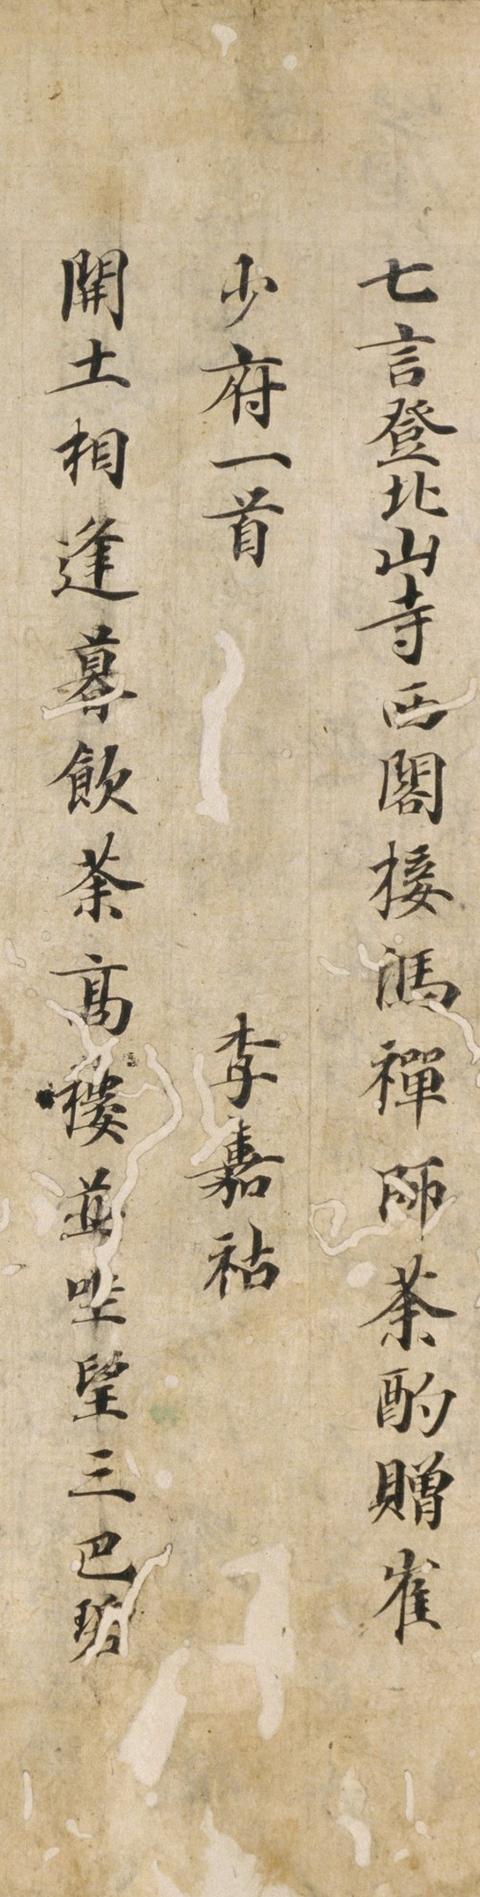 七言登北山寺西閣接馮禪師茶酌贈崔
少府一首 李嘉祐
開士相逢暮飲茶高樓並坐望三巴